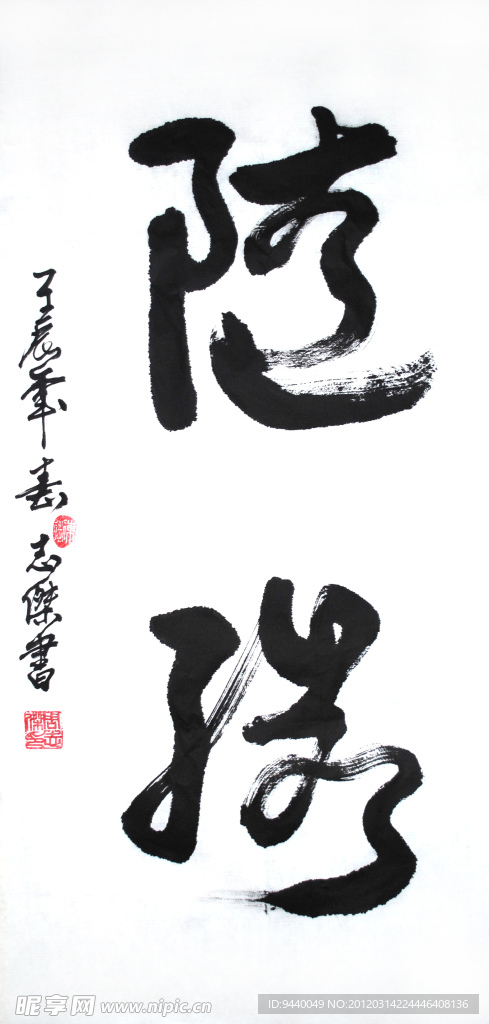 随缘
壬辰年春
志傑書
昵享网 www.nipic.cn
ID:9440049 NO:20120314224446408136